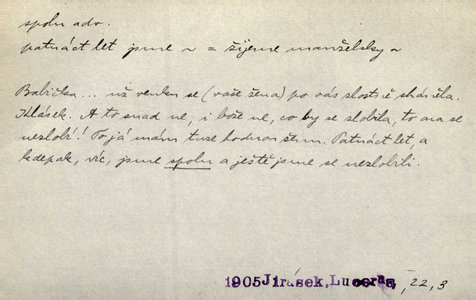 spolu adv.
patnáct let jsme ~ = žijeme manželsky ~
Babička... už venku se (vaše žena) po vás zlostně sháněla.
Klásek. A to snad ne, i bože ne, co by se zlobila, to ona se
nezlobí! To já mám tuze hodnou ženu. Patnáct let, a
kdepak, víc, jsme spolu a ještě jsme se nezlobili.
1905 Jirásek, Lucerna, 22,3